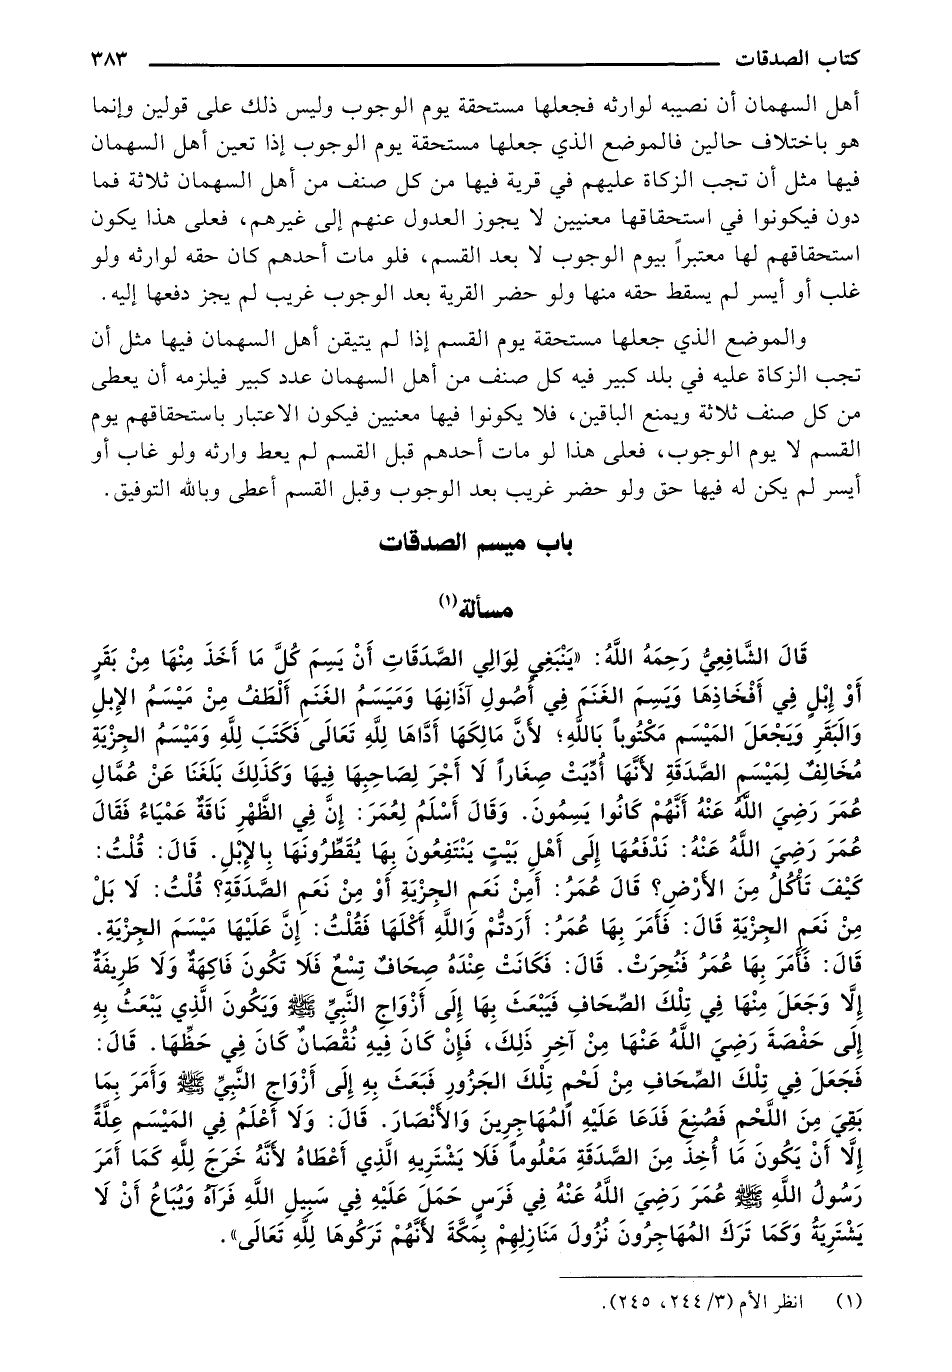 كتاب الصدقات ـــــــــــــــــــــ ٣٨٣
أهل السهمان أن نصيبه لوارثه فجعلها مستحقة يوم الوجوب وليس ذلك على قولين وإنما
هو باختلاف حالين فالموضع الذي جعلها مستحقة يوم الوجوب إذا تعين أهل السهمان
فيها مثل أن تجب الزكاة عليهم في قرية فيها من كل صنف من أهل السهمان ثلاثة فما
دون فيكونوا في استحقاقها معنيين لا يجوز العدول عنهم إلى غيرهم، فعلى هذا يكون
استحقاقهم لها معتبراً بيوم الوجوب لا بعد القسم، فلو مات أحدهم كان حقه لوارثه ولو
غلب أو أيسر لم يسقط حقه منها ولو حضر القرية بعد الوجوب غريب لم يجز دفعها إليه.
والموضع الذي جعلها مستحقة يوم القسم إذا لم يتيقن أهل السهمان فيها مثل أن
تجب الزكاة عليه في بلد كبير فيه كل صنف من أهل السهمان عدد كبير فيلزمه أن يعطى
من كل صنف ثلاثة ويمنع الباقين، فلا يكونوا فيها معنيين فيكون الاعتبار باستحقاقهم يوم
القسم لا يوم الوجوب، فعلى هذا لو مات أحدهم قبل القسم لم يعط وارثه ولو غاب أو
أيسر لم يكن له فيها حق ولو حضر غريب بعد الوجوب وقبل القسم أعطى وبالله التوفيق.
باب ميسم الصدقات
مسألة(١)
قَالَ الشَّافِعِيُّ رَحِمَهُ اللَّهُ: «يَنْبَغِي لِوَالِي الصَّدَقَاتِ أَنْ يَسِمَ كُلَّ مَا أَخَذَ مِنْهَا مِنْ بَقَرٍ
أَوْ إِبْلٍ فِي أَفْخَاذِهَا وَيَسِمَ الغَنَمَ فِي أُصُولِ آذَانِهَا وَمَيَسَمُ الغَنَمِ أَلْطَفُ مِنْ مَيْسَمُ الإِبلِ
وَالْبَقَرِ وَيَجْعَلَ المَيْسَم مَكْتُوباً بَاللَّهِ؛ لأَنَّ مَالِكَهَا أَدَّاهَا لِلَّهِ تَعَالَى فَكَتَبَ لِلَّهِ وَمَيْسَمُ الجِزْيَةِ
مُخَالِفٌ لِمَيْسَمِ الصَّدَقَةِ لأَنَّهَا أُدِّيَتْ صِغَاراً لَا أَجْرَ لِصَاحِبِهَا فِيهَا وَكَذَلِكَ بَلَغَنَا عَنْ عُمَّالِ
عُمَرَ رَضِيَ اللَّهُ عَنْهُ أَنَّهُمْ كَانُوا يَسِمُونَ. وَقَالَ أَسْلَمُ لِعُمَرَ: إِنَّ فِي الظَّهْرِ نَاقَةٌ عَمْيَاءُ فَقَالَ
عُمَرَ رَضِيَ اللَّهُ عَنْهُ: نَدْفَعُهَا إِلَى أَهْلِ بَيْتٍ يَنْتَفِعُونَ بِهَا يُقَطِّرُونَهَا بِالإِبْلِ. قَالَ: قُلْتُ:
كَيْفَ تَأْكُلُ مِنَ الأَرْضِ؟ قَالَ عُمَرُ: أَمِنْ نَعَمِ الجِزْيَةِ أَوْ مِنْ نَعَمِ الصَّدَقَةِ؟ قُلْتُ: لَا بَلْ
مِنْ نَعَمِ الجِزْيَةِ قَالَ: فَأَمَرَ بِهَا عُمَرُ: أَرَدتُّمْ وَاللَّهِ أَكْلَهَا فَقُلْتُ: إِنَّ عَلَيْهَا مَيْسَمَ الجِزْيَةِ.
قَالَ: فَأَمَرَ بِهَا عُمَرُ فَنُحِرَتْ. قَالَ: فَكَانَتْ عِنْدَهُ صِحَافٌ تِسْعٌ فَلَا تَكُونَ فَاكِهَةٌ وَلَا طَرِيفَةٌ
إِلَّا وَجَعَلَ مِنْهَا فِي تِلْكَ الصِّحَافِ فَيَبْعَثَ بِهَا إِلَى أَزْوَاجِ النَّبِيِّ ﷺ وَيَكُونَ الَّذِي يَبْعَثُ بِهِ
إِلَى حَفْصَةَ رَضِيَ اللَّهُ عَنْهَا مِنْ آخِرِ ذَلِكَ، فَإِنْ كَانَ فِيهِ نُقْصَانٌ كَانَ فِي حَظِّهَا. قَالَ:
فَجَعَلَ فِي تِلْكَ الصِّحَافِ مِنْ لَحْمِ تِلْكَ الجَزُورِ فَبَعَثَ بِهِ إِلَى أَزْوَاجِ النَّبِيِّ ﷺ وَأَمَرَ بِمَا
بَقِيَ مِنَ اللَّحْمِ فَصُنِعَ فَدَعَا عَلَيْهِ الْمُهَاجِرِينَ وَالأَنْصَارَ. قَالَ: وَلَا أَعْلَمُ فِي المَيْسَمِ عِلَّةً
إِلَّا أَنْ يَكُونَ مَا أُخِذَ مِنَ الصَّدَقَةِ مَعْلُوماً فَلَا يَشْتَرِيهِ الَّذِي أَعْطَاهُ لأَنَّهُ خَرَجَ لِلَّهِ كَمَا أَمَرَ
رَسُولُ اللَّهِ ﷺ عُمَرَ رَضِيَ اللَّهُ عَنْهُ فِي فَرَسٍ حَمَلَ عَلَيْهِ فِي سَبِيلِ اللَّهِ فَرَآهُ وَيُبَاعُ أَنْ لَا
يَشْتَرِيَهُ وَكَمَا تَرَكَ المُهَاجِرُونَ نُزُولَ مَنَازِلِهِمْ بِمَكَّةَ لأَنَّهُمْ تَرَكُوهَا لِلَّهِ تَعَالَى».
(١) انظر الأم (٣/ ٢٤٤، ٢٤٥).